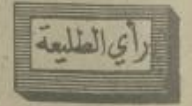 رأي الطليعة